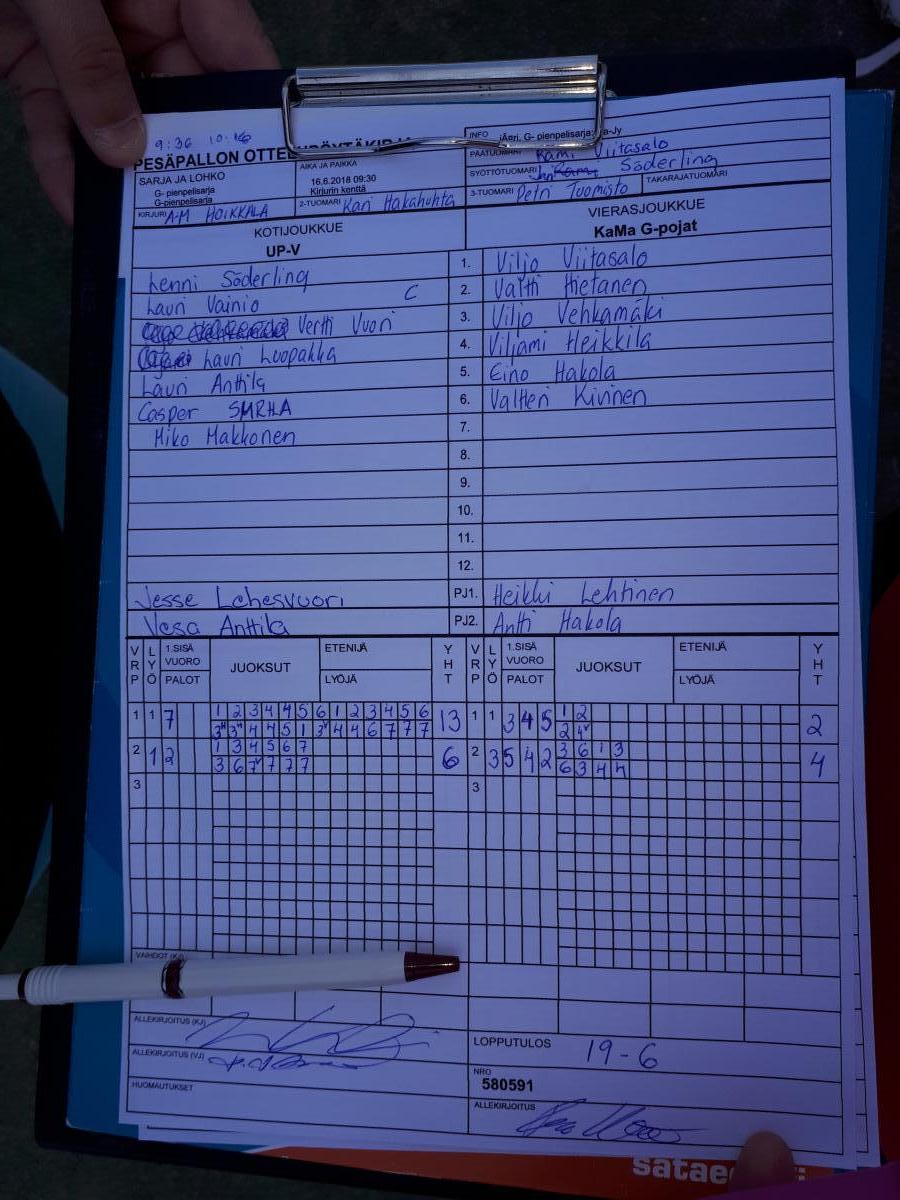 9:36 10:16
PESÄPALLON OTTE
SARJA JA LOHKO
G- pienpelisarja
G-pienpelisarja
AIKA JA PAIKKA
16.6.2018 09:30
Kirjurin kenttä
INFO
G- pienpelisarja:
PÄÄTUOMARI Rami Viitasalo
SYÖTTÖTUOMARI Söderling
KIRJURI A-M HOIKKALA
2-TUOMARI Kari Hakahuhta
3-TUOMARI Petri Tuomisto
TAKARAJATUOMARI
KOTIJOUKKUE
UP-V
VIERASJOUKKUE
KaMa G-pojat
Lenni Söderling 1. Viljo Viitasalo
Lauri Vainio C 2. Valtti Hietanen
Vertti Vuori 3. Viljo Vehkamäki
Lauri Luopakka 4. Viljami Heikkilä
Lauri Anttila 5. Eino Hakola
Casper SMRHA 6. Valtteri Kivinen
Miko Makkonen 7.
8.
9.
10.
11.
12.
Jesse Lehesvuori PJ1. Heikki Lehtinen
Vesa Anttila PJ2. Antti Hakola
VRP LYÖ 1.SISÄ VUORO PALOT JUOKSUT ETENIJÄ LYÖJÄ YHT VRP LYÖ 1.SISÄ VUORO PALOT JUOKSUT ETENIJÄ LYÖJÄ YHT
1 1 7 1 2 3 4 4 5 6 1 2 3 4 5 6 13 1 1 3 4 5 1 2 2
3 3 4 4 5 1 3 4 4 6 7 7 7 2 4
2 1 2 1 3 4 5 6 7 6 2 3 5 4 2 3 6 1 3 4
3 6 7 7 7 7 6 3 4 4
3 3
VAIHDOT (KJ)
ALLEKIRJOITUS (KJ)
LOPPUTULOS 19-6
ALLEKIRJOITUS (VJ)
NRO
580591
HUOMAUTUKSET
ALLEKIRJOITUS
satae